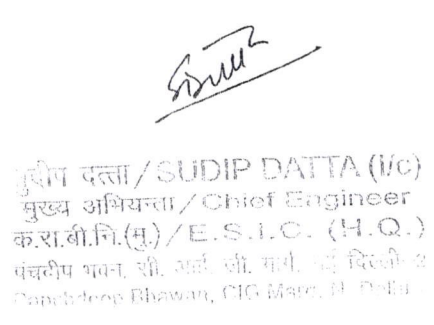 सुदीप दत्ता / SUDIP DATTA (I/c)
मुख्य अभियन्ता / Chief Engineer
क.रा.बी.नि.(मु.) / E.S.I.C. (H.Q.)
पंचदीप भवन, सी. आई. जी. मार्ग, नई दिल्ली-2
Panchdeep Bhawan, CIG Marg, N. Delhi